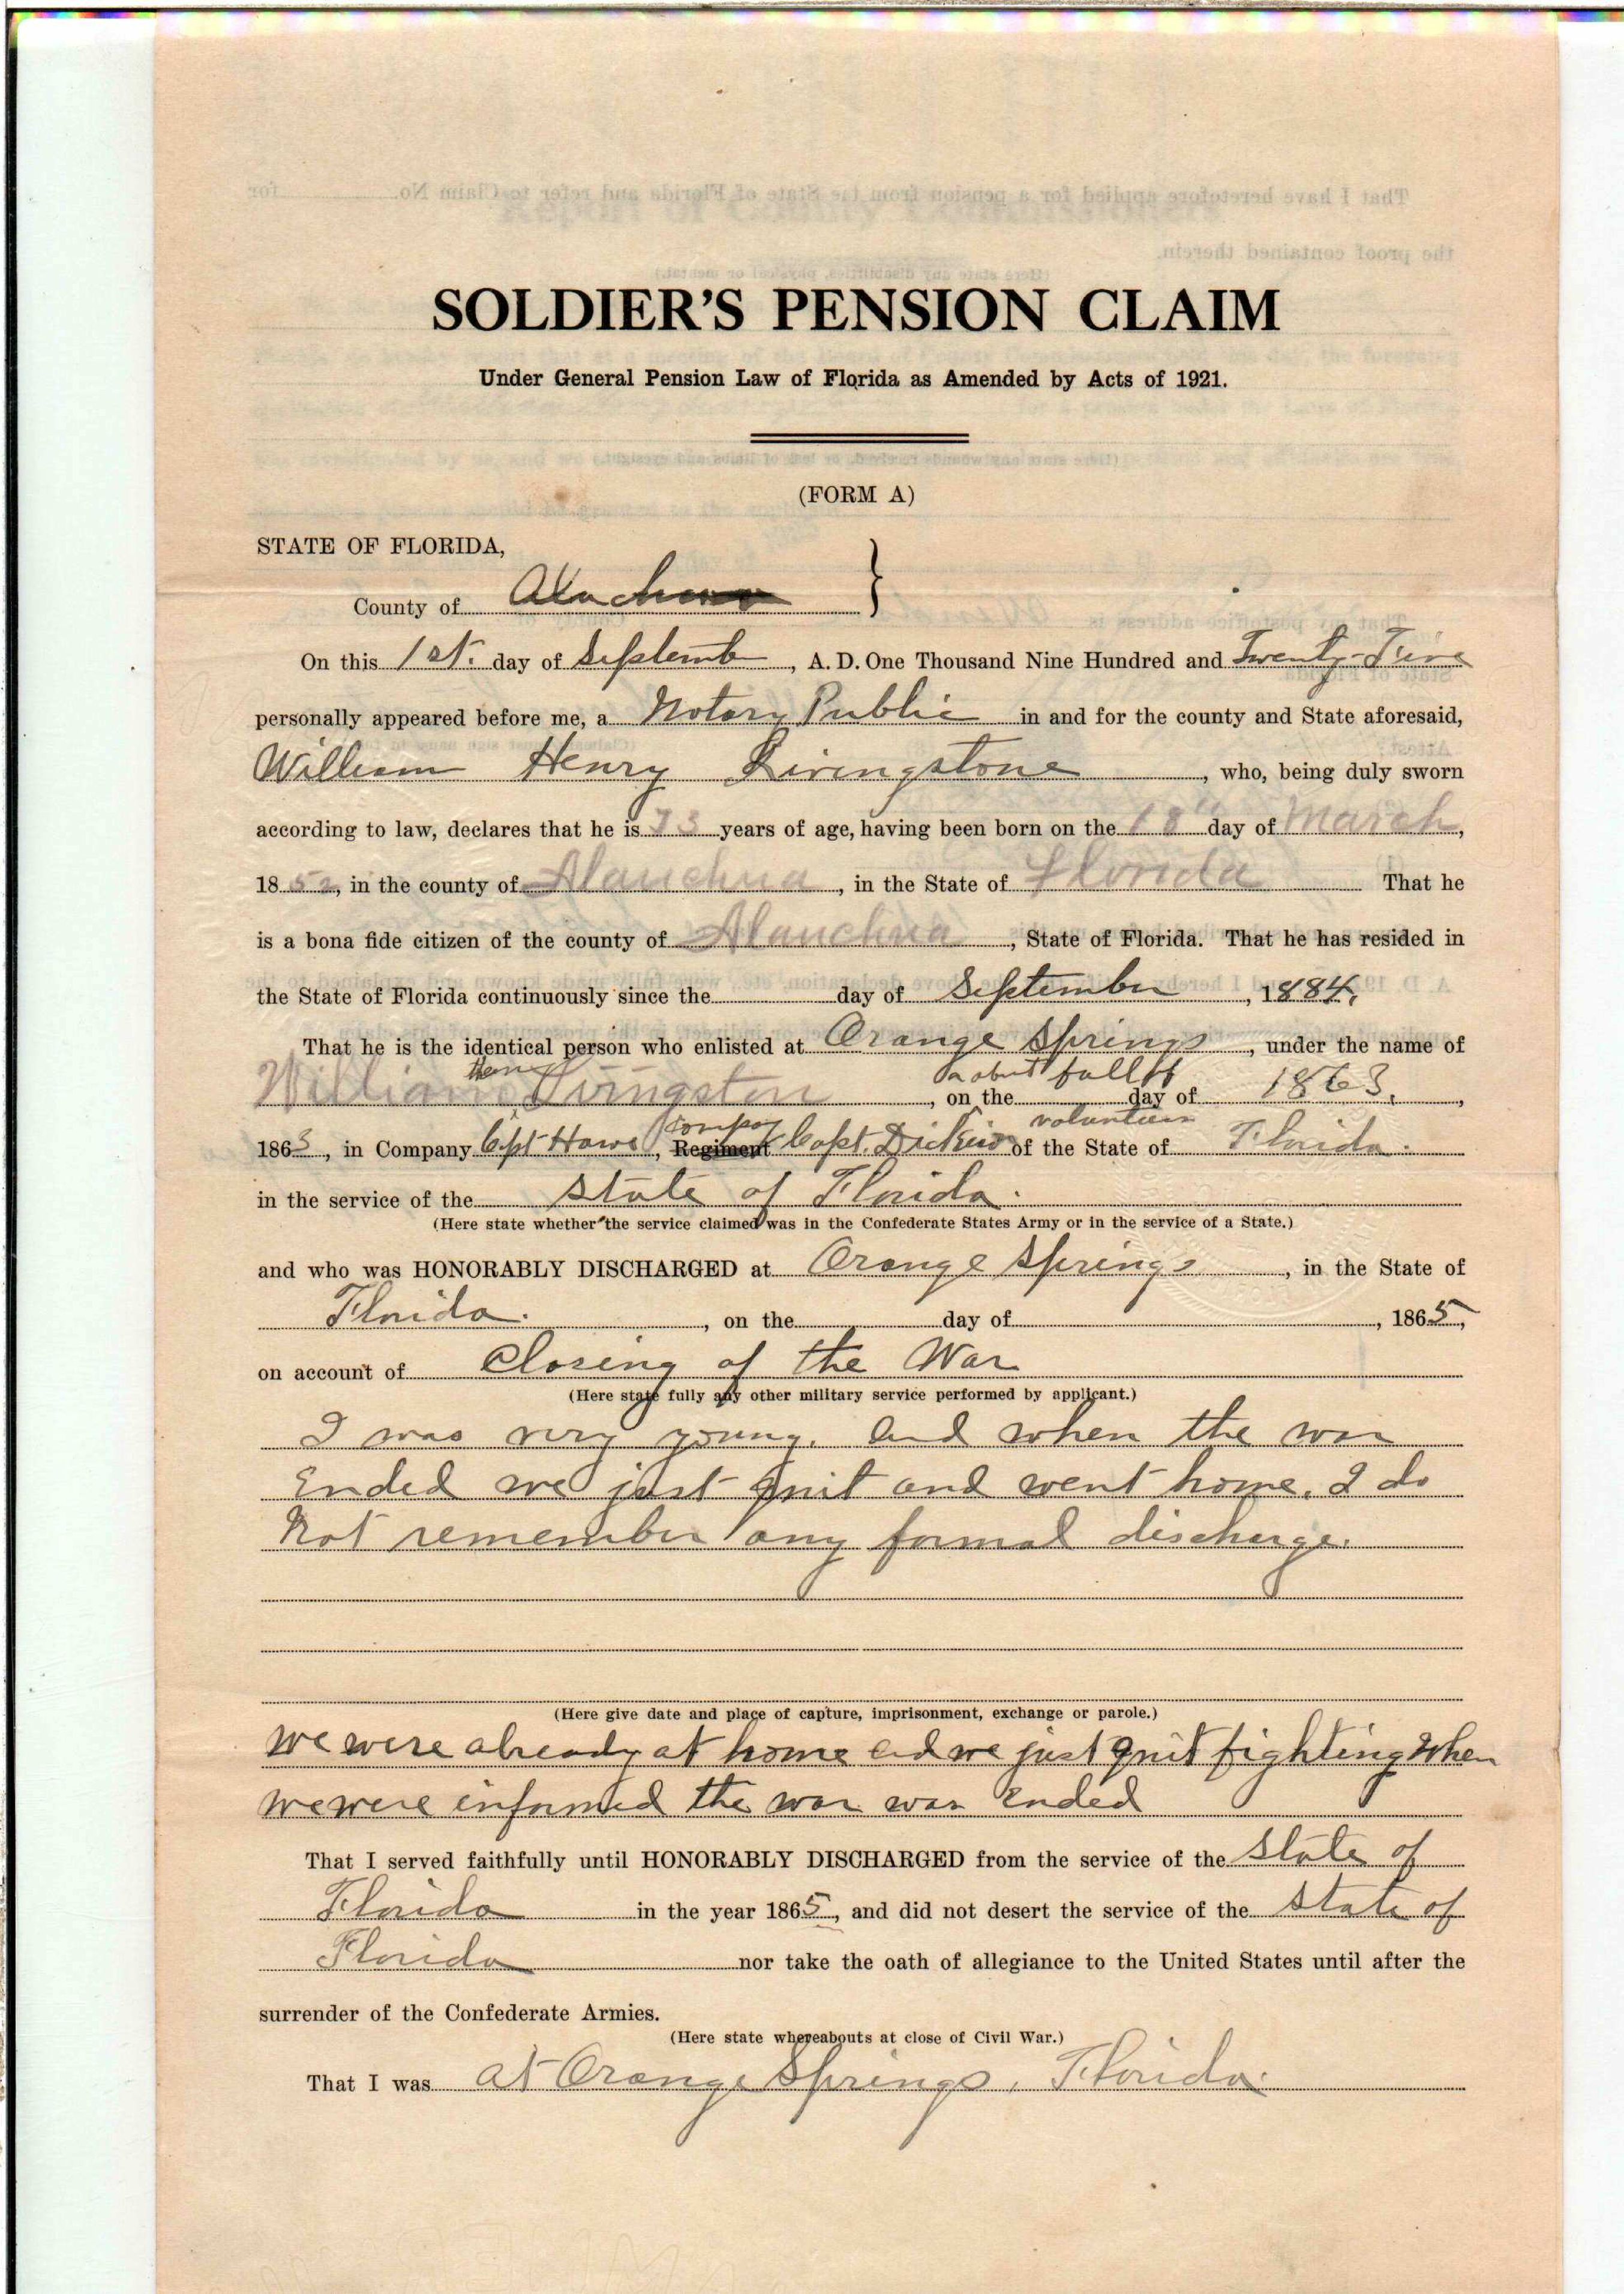 SOLDIER'S PENSION CLAIM
Under General Pension Law of Florida as Amended by Acts of 1921.
(FORM A)
STATE OF FLORIDA,
County of Alachua }
On this 1st. day of Septemb, A. D. One Thousand Nine Hundred and Twenty-Five
personally appeared before me, a Notary Public in and for the county and State aforesaid,
William Henry Livingstone, who, being duly sworn
according to law, declares that he is 73 years of age, having been born on the 18" day of March,
1852, in the county of Alauchua, in the State of Florida That he
is a bona fide citizen of the county of Alauchua, State of Florida. That he has resided in
the State of Florida continuously since the day of September, 1884.
That he is the identical person who enlisted at Orange Springs, under the name of
Henry on about fall of
William Livingston, on the day of 1863.,
Company volunteers
1863, in Company Cpt Haws, Regiment Capt. Dickiso of the State of Florida.
in the service of the State of Florida.
(Here state whether the service claimed was in the Confederate States Army or in the service of a State.)
and who was HONORABLY DISCHARGED at Orange Springs, in the State of
Florida., on the day of, 1865,
on account of Closing of the War
(Here state fully any other military service performed by applicant.)
I was very young. and when the war
Ended we just quit and went home. I do
Not remember any formal discharge.
(Here give date and place of capture, imprisonment, exchange or parole.)
we were already at home and we just quit fighting when
we were informed the war was Ended
That I served faithfully until HONORABLY DISCHARGED from the service of the State of
Florida in the year 1865, and did not desert the service of the State of
Florida nor take the oath of allegiance to the United States until after the
surrender of the Confederate Armies.
(Here state whereabouts at close of Civil War.)
That I was at Orange Springs, Florida.